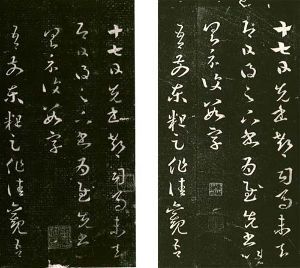 十七日先書郗司馬未去
即日得足下書為慰先書以
具示復數字
吾前東粗足作佳觀吾
十七日先書郗司馬未去
即日得足下書為慰先書
具示復數字
吾前東粗足作佳觀吾